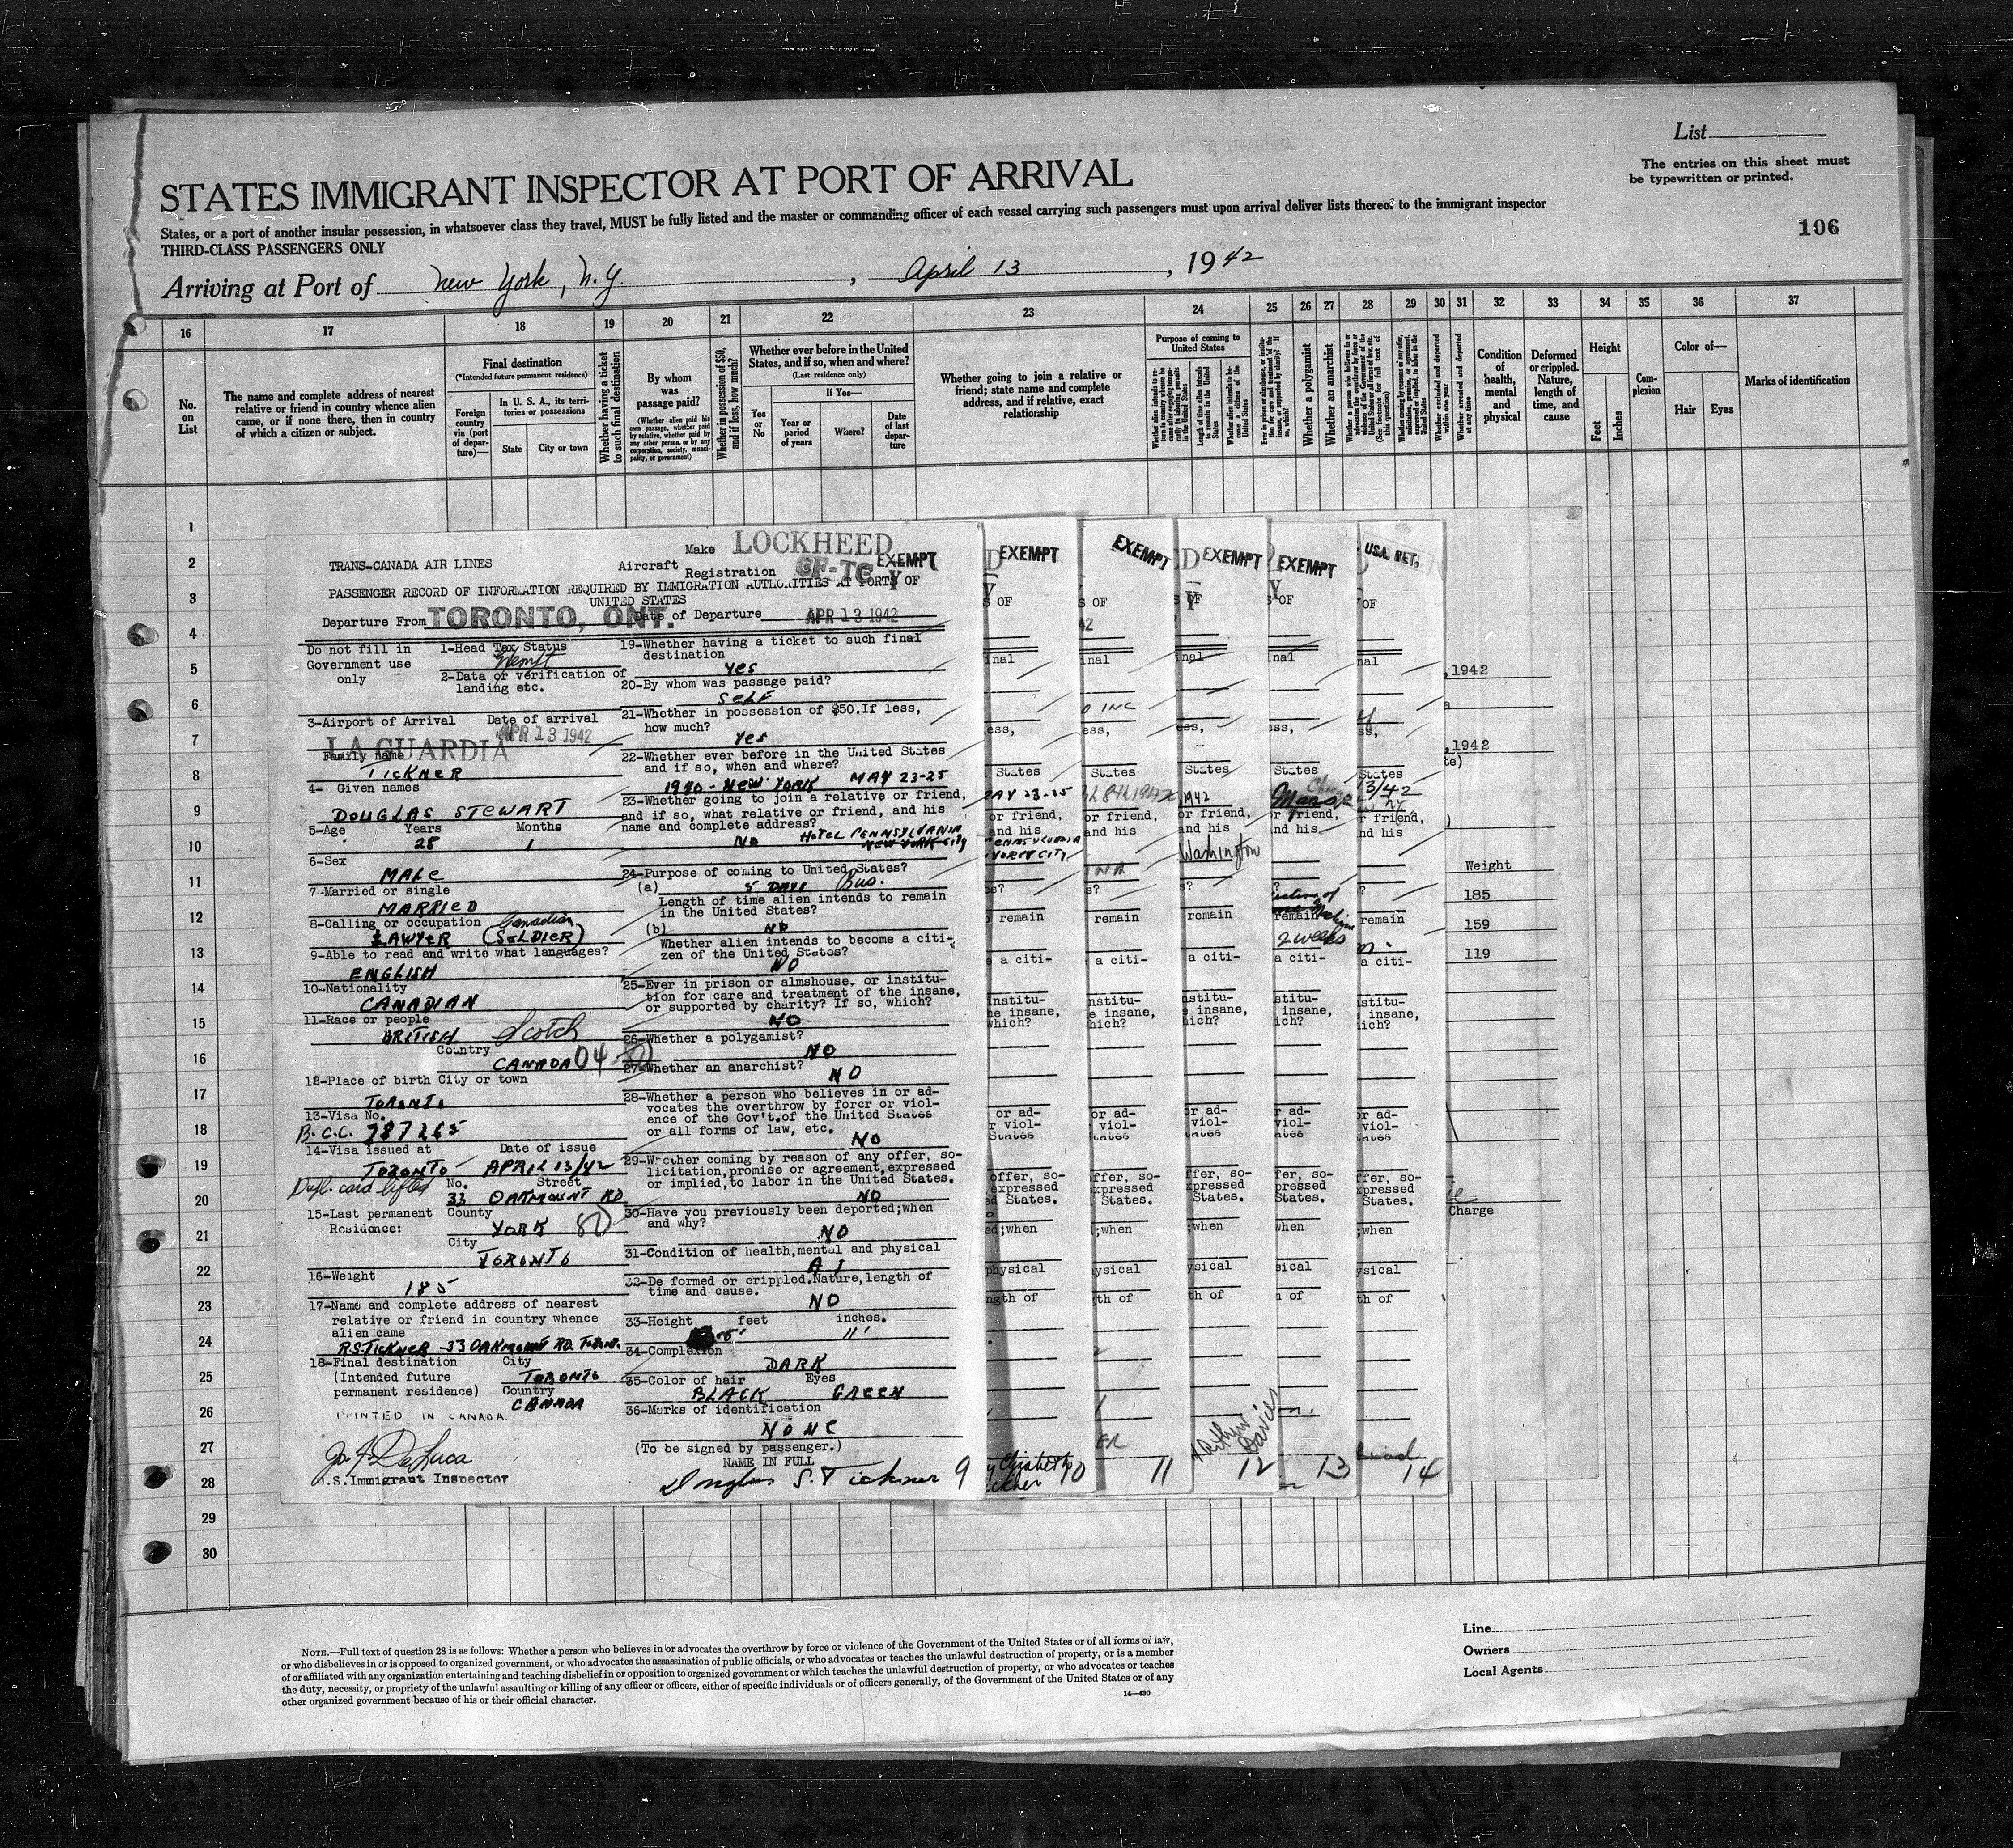 List
The entries on this sheet must
be typewritten or printed.
STATES IMMIGRANT INSPECTOR AT PORT OF ARRIVAL
States, or a port of another insular possession, in whatsoever class they travel, MUST be fully listed and the master or commanding officer of each vessel carrying such passengers must upon arrival deliver lists thereof to the immigrant inspector
THIRD-CLASS PASSENGERS ONLY
106
Arriving at Port of New York, N.Y., April 13, 1942
16 17 18 19 20 21 22 23 24 25 26 27 28 29 30 31 32 33 34 35 36 37
No.
on
List
The name and complete address of nearest
relative or friend in country whence alien
came, or if none there, then in country
of which a citizen or subject.
Final destination
(*Intended future permanent residence)
Foreign
country
via (port
of depar-
ture)—
In U. S. A., its terri-
tories or possessions
State
City or town
Whether having a ticket
to such final destination
By whom
was
passage paid?
(Whether alien paid his
own passage, whether paid
by relative, whether paid by
any other person, or by any
corporation, society, munici-
pality, or government)
Whether in possession of $50,
and if less, how much?
Whether ever before in the United
States, and if so, when and where?
(Last residence only)
Yes
or
No
If Yes—
Year or
period
of years
Where?
Date
of last
depar-
ture
Whether going to join a relative or
friend; state name and complete
address, and if relative, exact
relationship
Purpose of coming to
United States
Whether a polygamist
Whether an anarchist
Condition
of
health,
mental
and
physical
Deformed
or crippled.
Nature,
length of
time, and
cause
Height
Feet
Inches
Com-
plexion
Color of—
Hair
Eyes
Marks of identification
1
2
3
4
5
6
7
8
9
10
11
12
13
14
15
16
17
18
19
20
21
22
23
24
25
26
27
28
29
30
TRANS-CANADA AIR LINES
Aircraft
Make LOCKHEED
Registration CF-TC Y
EXEMPT
PASSENGER RECORD OF INFORMATION REQUIRED BY IMMIGRATION AUTHORITIES AT PORTS OF
UNITED STATES
Departure From TORONTO, ONT. Date of Departure APR 13 1942
Do not fill in
Government use
only
1-Head Tax Status
Exempt
2-Data or verification of
landing etc.
3-Airport of Arrival Date of arrival
LA GUARDIA APR 13 1942
Family Name
TICKNER
4- Given names
DOUGLAS STEWART
5-Age Years Months
28 1
6-Sex
MALE
7-Married or single
MARRIED
8-Calling or occupation Canadian
LAWYER (SOLDIER)
9-Able to read and write what languages?
ENGLISH
10-Nationality
CANADIAN
11-Race or people
BRITISH Scotch
Country
CANADA 04
12-Place of birth City or town
TORONTO
13-Visa No.
B.C.C. 787265
14-Visa issued at Date of issue
TORONTO - APRIL 13/42
Dupl. card lifted
No. Street
33 OAKMOUNT RD
15-Last permanent County
Residence: YORK
City
TORONTO
16-Weight
185
17-Name and complete address of nearest
relative or friend in country whence
alien came
R.S. TICKNER - 33 OAKMOUNT RD. TORONTO
18-Final destination City
(Intended future TORONTO
permanent residence) Country
CANADA
PRINTED IN CANADA
U.S. Immigrant Inspector
19-Whether having a ticket to such final
destination
Yes
20-By whom was passage paid?
SELF
21-Whether in possession of $50.If less,
how much?
Yes
22-Whether ever before in the United States
and if so, when and where?
1940 - NEW YORK MAY 23-25
23-Whether going to join a relative or friend,
and if so, what relative or friend, and his
name and complete address?
NO HOTEL PENNSYLVANIA
NEW YORK CITY
24-Purpose of coming to United States?
(a) 5 DAYS Bus.
Length of time alien intends to remain
in the United States?
(b) NO
Whether alien intends to become a citi-
zen of the United States?
NO
25-Ever in prison or almshouse, or institu-
tion for care and treatment of the insane,
or supported by charity? If so, which?
NO
26-Whether a polygamist?
NO
27-Whether an anarchist?
NO
28-Whether a person who believes in or ad-
vocates the overthrow by forcr or viol-
ence of the Gov't.of the United States
or all forms of law, etc.
NO
29-Whether coming by reason of any offer, so-
licitation,promise or agreement,expressed
or implied,to labor in the United States.
NO
30-Have you previously been deported;when
and why?
NO
31-Condition of health,mental and physical
A 1
32-De formed or crippled.Nature,length of
time and cause.
NO
33-Height feet inches.
5' 11"
34-Complexion
DARK
35-Color of hair Eyes
BLACK GREEN
36-Marks of identification
NONE
(To be signed by passenger.)
NAME IN FULL
Douglas S. Tickner 9
EXEMPT
MAY 23-25
PENNSYLVANIA
YORK CITY
Elizabeth 10
EXEMPT
O INC
11
EXEMPT
1942
Washington
Arthur
Davies
12
EXEMPT
2 weeks
13
USA. RET.
13/42
14
, 1942
, 1942
Weight
185
159
119
Charge
NOTE.—Full text of question 28 is as follows: Whether a person who believes in or advocates the overthrow by force or violence of the Government of the United States or of all forms of law,
or who disbelieves in or is opposed to organized government, or who advocates the assassination of public officials, or who advocates or teaches the unlawful destruction of property, or is a member
of or affiliated with any organization entertaining and teaching disbelief in or opposition to organized government or which teaches the unlawful destruction of property, or who advocates or teaches
the duty, necessity, or propriety of the unlawful assaulting or killing of any officer or officers, either of specific individuals or of officers generally, of the Government of the United States or of any
other organized government because of his or their official character.
14—430
Line
Owners
Local Agents